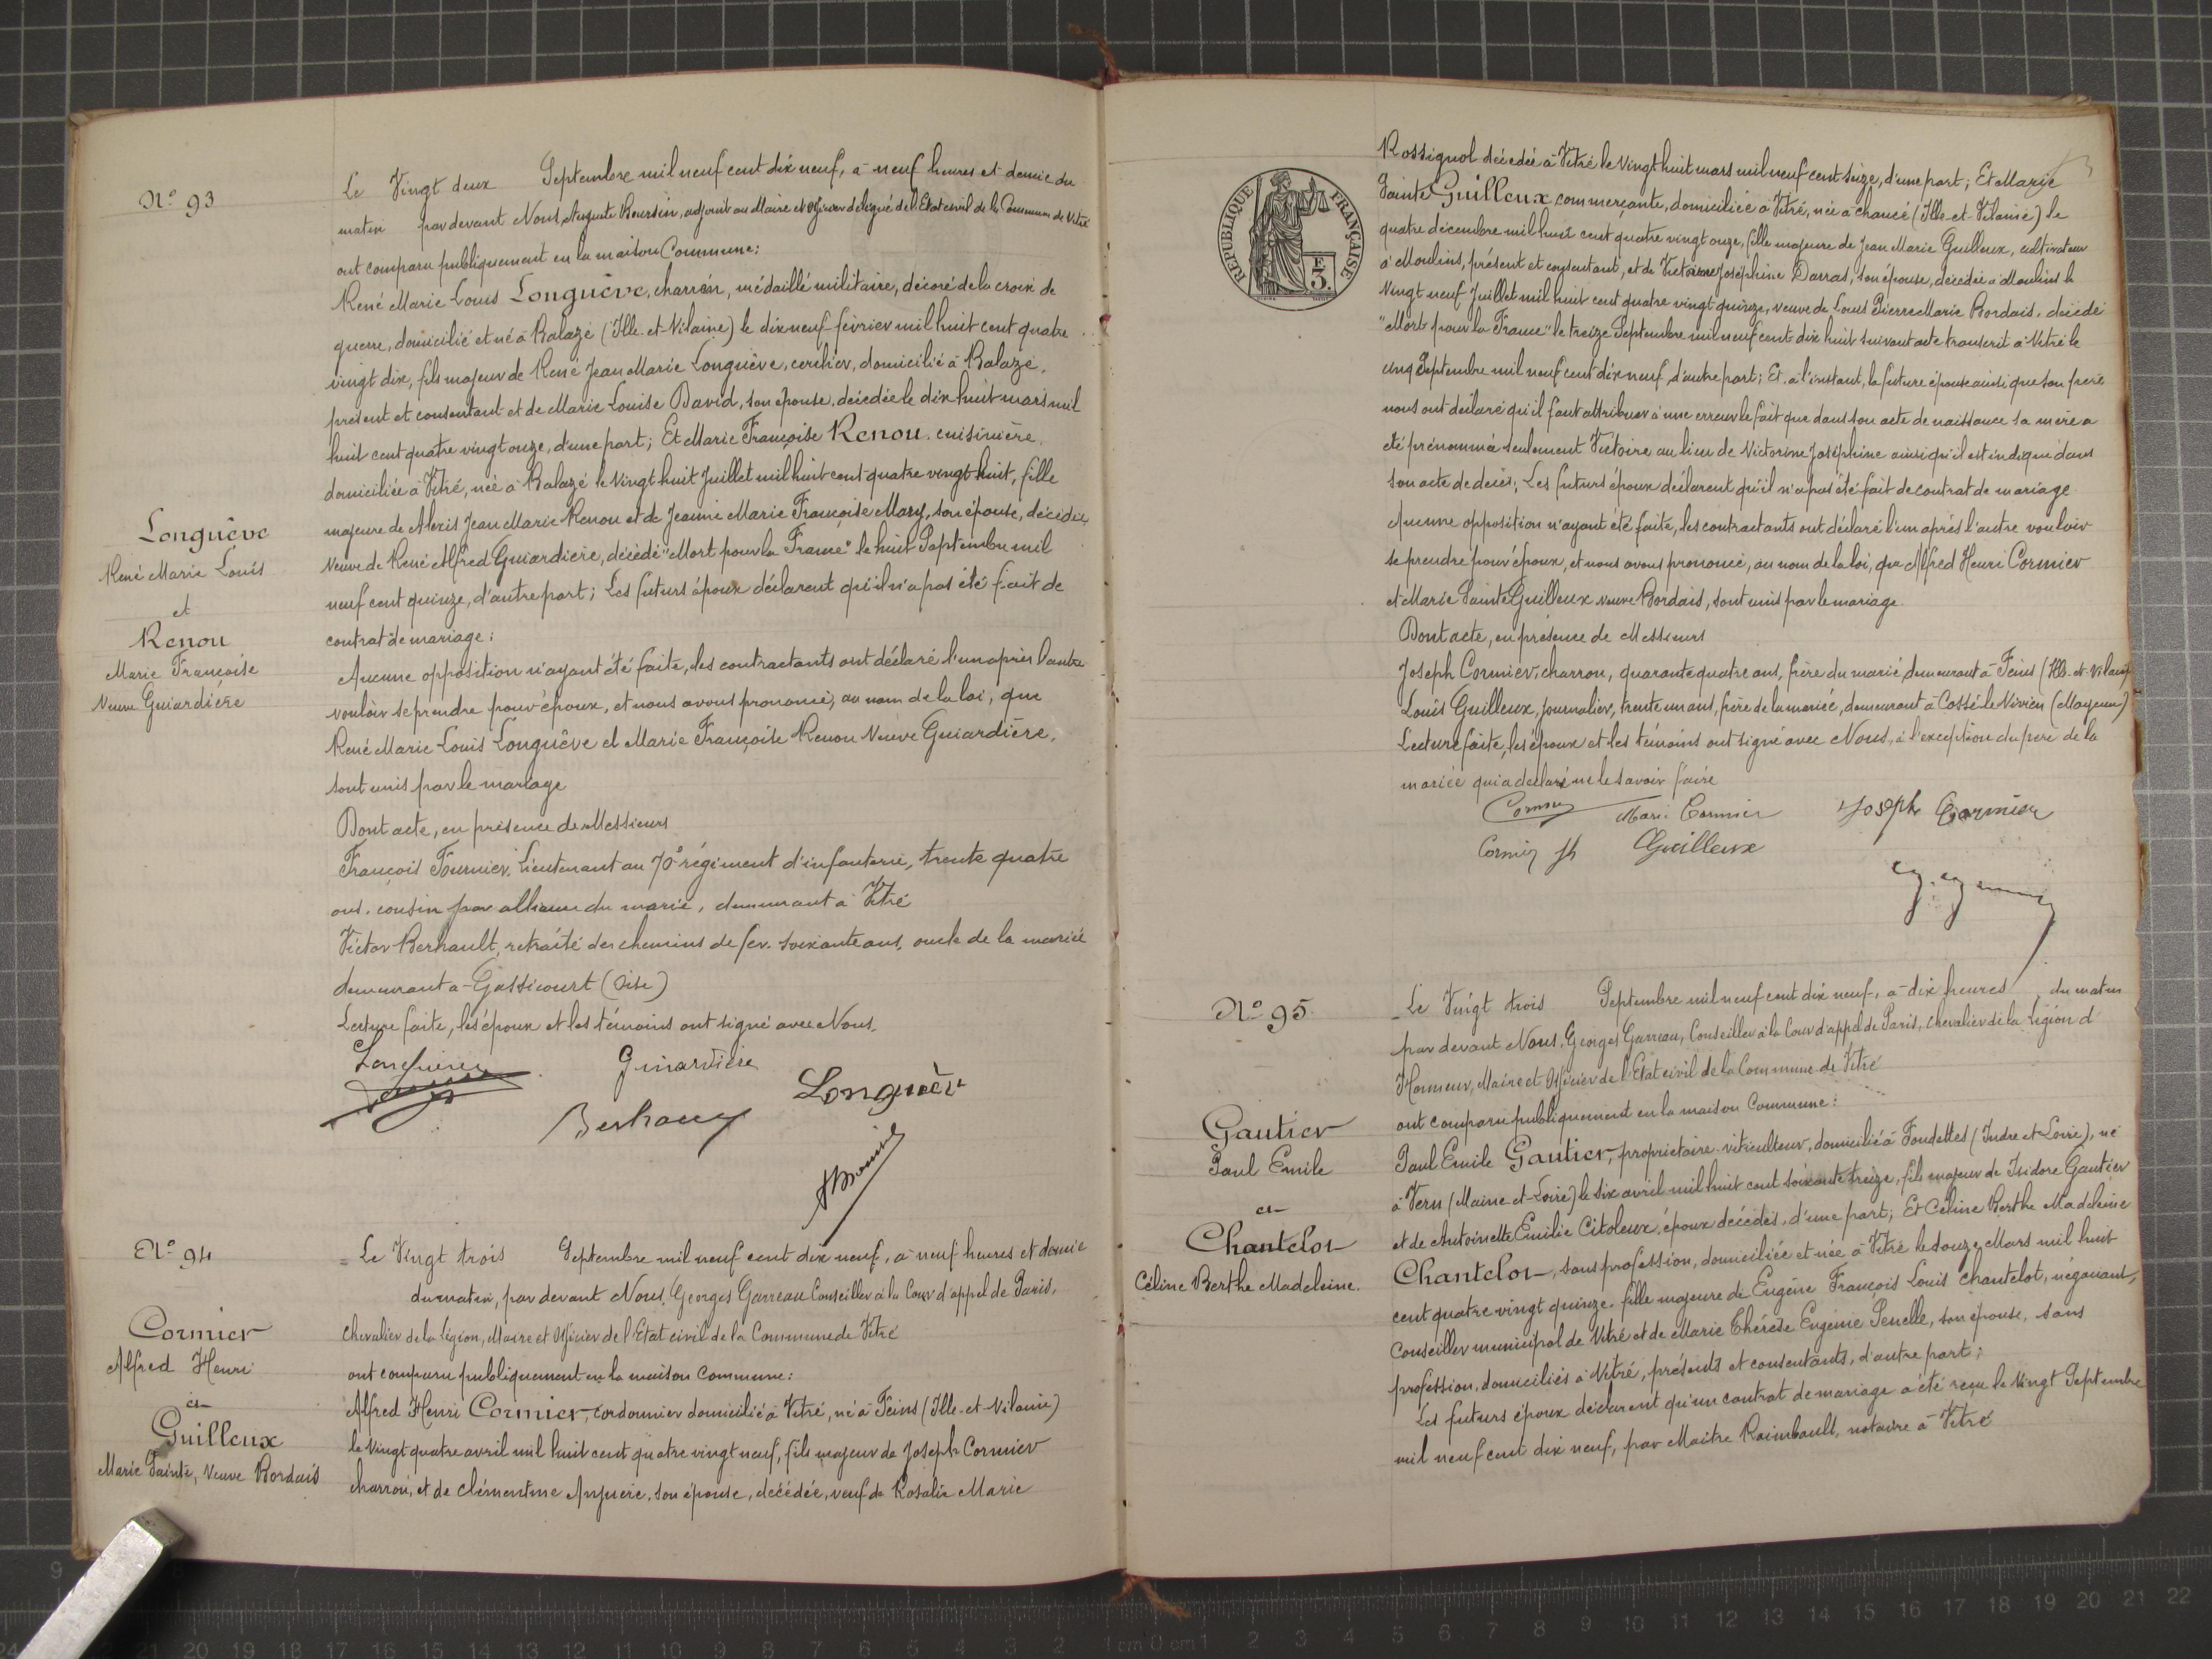 N° 93
Longuève
René Marie Louis
et
Renou
Marie Françoise
Veuve Guiardière
Le Vingt deux Septembre mil neuf cent dix neuf, à neuf heures et demie du
matin par devant Nous, Auguste Boursin, adjoint au Maire et officier délégué de l'Etat civil de la Commune de Vitré
ont comparu publiquement en la maison Commune :
René Marie Louis Longuève, charron, médaillé militaire, décoré de la croix de
guerre, domicilié et né à Balazé (Ille-et-Vilaine) le dix neuf février mil huit cent quatre
vingt dix, fils majeur de René Jean Marie Longuève, cordier, domicilié à Balazé,
présent et consentant et de Marie Louise David, son épouse, décédée le dix huit mars mil
huit cent quatre vingt onze, d'une part ; Et Marie Françoise Renou, cuisinière,
domiciliée à Vitré, née à Balazé le Vingt huit Juillet mil huit cent quatre vingt huit, fille
majeure de Alexis Jean Marie Renou et de Jeanne Marie Françoise Mary, son épouse, décédés,
Veuve de René Alfred Guiardière, décédé "Mort pour la France" le huit Septembre mil
neuf cent quinze, d'autre part ; Les futurs époux déclarent qu'il n'a pas été fait de
contrat de mariage ;
Aucune opposition n'ayant été faite, les contractants ont déclaré l'un après l'autre
vouloir se prendre pour époux, et nous avons prononcé, au nom de la loi, que
René Marie Louis Longuève et Marie Françoise Renou Veuve Guiardière,
sont unis par le mariage
Dont acte, en présence de Messieurs
François Fournier, Lieutenant au 70° régiment d'infanterie, trente quatre
ans, cousin par alliance du marié, demeurant à Vitré
Victor Berhault, retraité des chemins de fer, soixante ans, oncle de la mariée
demeurant à Gassicourt (Oise)
Lecture faite, les époux et les témoins ont signé avec Nous.
Guiardière
Longuève
N° 94
Cormier
Alfred Henri
et
Guilleux
Marie Sainte, Veuve Bordais
Le Vingt trois Septembre mil neuf cent dix neuf, à neuf heures et demie
du matin, par devant Nous, Georges Garreau Conseiller à la Cour d'appel de Paris,
Chevalier de la Légion, Maire et Officier de l'Etat civil de la Commune de Vitré
ont comparu publiquement en la maison commune :
Alfred Henri Cormier, cordonnier domicilié à Vitré, né à Feins (Ille-et-Vilaine)
le Vingt quatre avril mil huit cent quatre vingt neuf, fils majeur de Joseph Cormier
charron, et de Clémentine Anjuère, son épouse, décédée, veuf de Rosalie Marie
REPUBLIQUE FRANÇAISE
F
3.
Rossignol décédée à Vitré le Vingt huit mars mil neuf cent seize, d'une part ; Et Marie
Sainte Guilleux, commerçante, domiciliée à Vitré, née à Chancé (Ille-et-Vilaine) le
quatre décembre mil huit cent quatre vingt onze, fille majeure de Jean Marie Guilleux, cultivateur
à Moulins, présent et consentant, et de Victorine Joséphine Darras, son épouse, décédée à Moulins le
Vingt neuf Juillet mil huit cent quatre vingt quinze, veuve de Louis Pierre Marie Bordais, décédé
"Mort pour la France" le treize Septembre mil neuf cent dix huit suivant acte transcrit à Vitré le
cinq Septembre mil neuf cent dix neuf, d'autre part ; Et à l'instant, la future épouse ainsi que son père
nous ont déclaré qu'il faut attribuer à une erreur le fait que dans son acte de naissance sa mère a
été prénommée seulement Victoire au lieu de Victorine Joséphine ainsi qu'il est indiqué dans
son acte de décès ; Les futurs époux déclarent qu'il n'a pas été fait de contrat de mariage
Aucune opposition n'ayant été faite, les contractants ont déclaré l'un après l'autre vouloir
se prendre pour époux, et nous avons prononcé, au nom de la loi, que Alfred Henri Cormier
et Marie Sainte Guilleux veuve Bordais, sont unis par le mariage.
Dont acte, en présence de Messieurs
Joseph Cormier, charron, quarante quatre ans, frère du marié, demeurant à Feins (Ille-et-Vilaine)
Louis Guilleux, journalier, trente un ans, frère de la mariée, demeurant à Cossé-le-Vivien (Mayenne)
Lecture faite, les époux et les témoins ont signé avec Nous, à l'exception du père de la
mariée qui a déclaré ne le savoir faire
Marie Cormier Joseph Cormier
Guilleux
N° 95
Gautier
Paul Emile
et
Chantelot
Céline Berthe Madeleine.
Le Vingt trois Septembre mil neuf cent dix neuf, à dix heures du matin
par devant Nous, Georges Garreau, Conseiller à la Cour d'appel de Paris, Chevalier de la Légion d'
Honneur, Maire et Officier de l'Etat civil de la Commune de Vitré
ont comparu publiquement en la maison Commune :
Paul Emile Gautier, propriétaire-viticulteur, domicilié à Fondettes (Indre et Loire), né
à Vern (Maine-et-Loire) le six avril mil huit cent soixante treize, fils majeur de Isidore Gautier
et de Antoinette Emilie Citoleux, époux décédés, d'une part ; Et Céline Berthe Madeleine
Chantelot, sans profession, domiciliée et née à Vitré le douze Mars mil huit
cent quatre vingt quinze, fille majeure de Eugène François Louis Chantelot, négociant,
Conseiller municipal de Vitré et de Marie Thérèse Eugénie Penelle, son épouse, sans
profession, domiciliés à Vitré, présents et consentants, d'autre part ;
Les futurs époux déclarent qu'un contrat de mariage a été reçu le Vingt Septembre
mil neuf cent dix neuf, par Maître Raimbault, notaire à Vitré